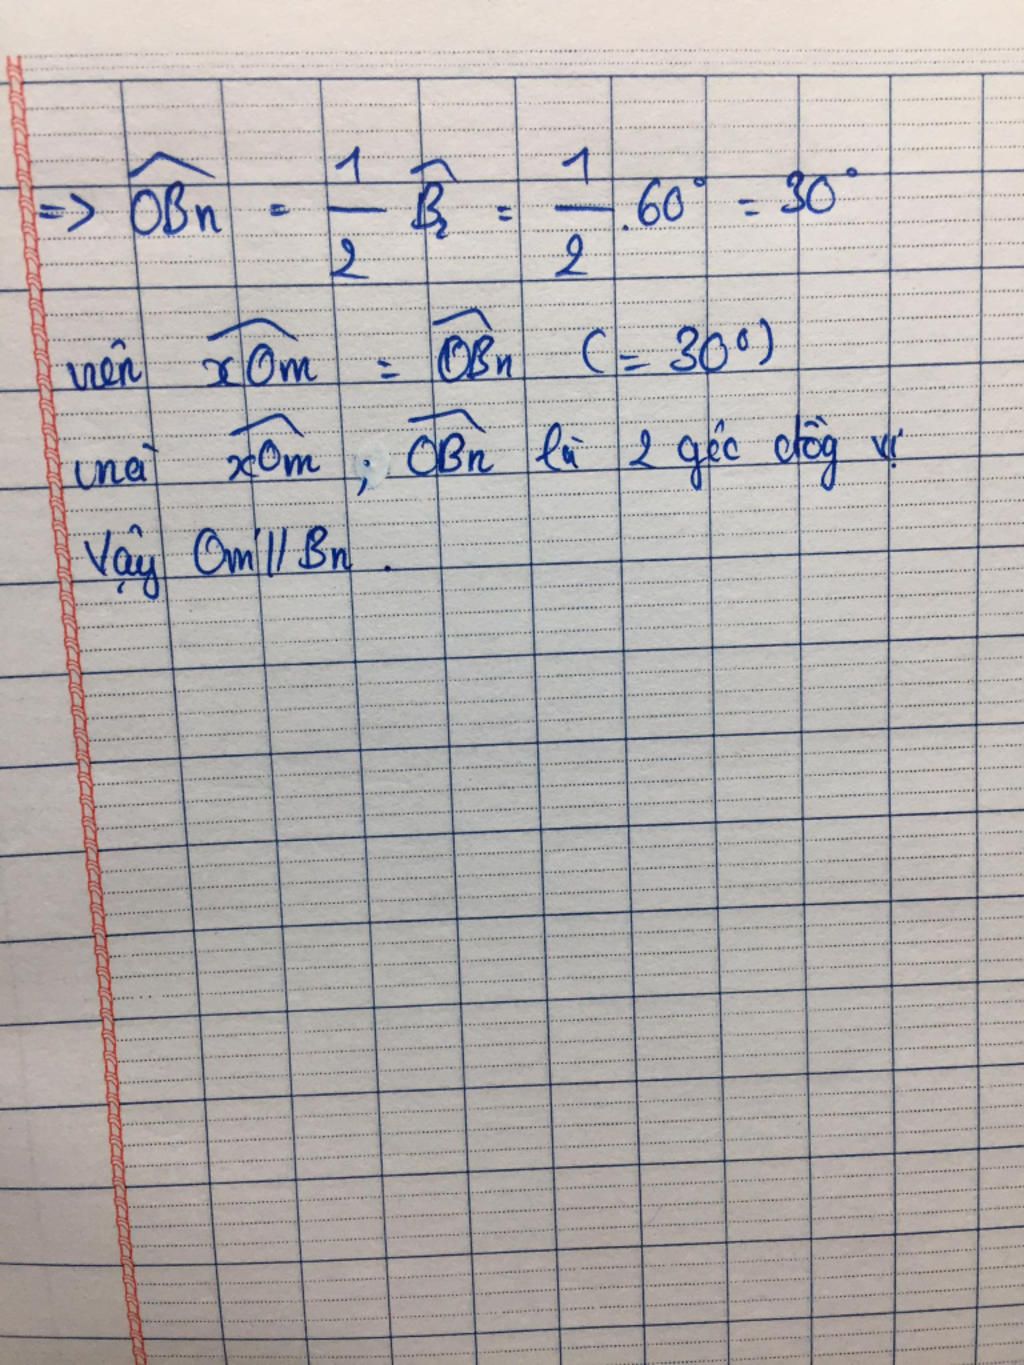 => OBn = 1/2 B₂ = 1/2 . 60° = 30°
nên xOm = OBn (= 30°)
mà xOm ; OBn là 2 góc đồg vị
Vậy Om // Bn .